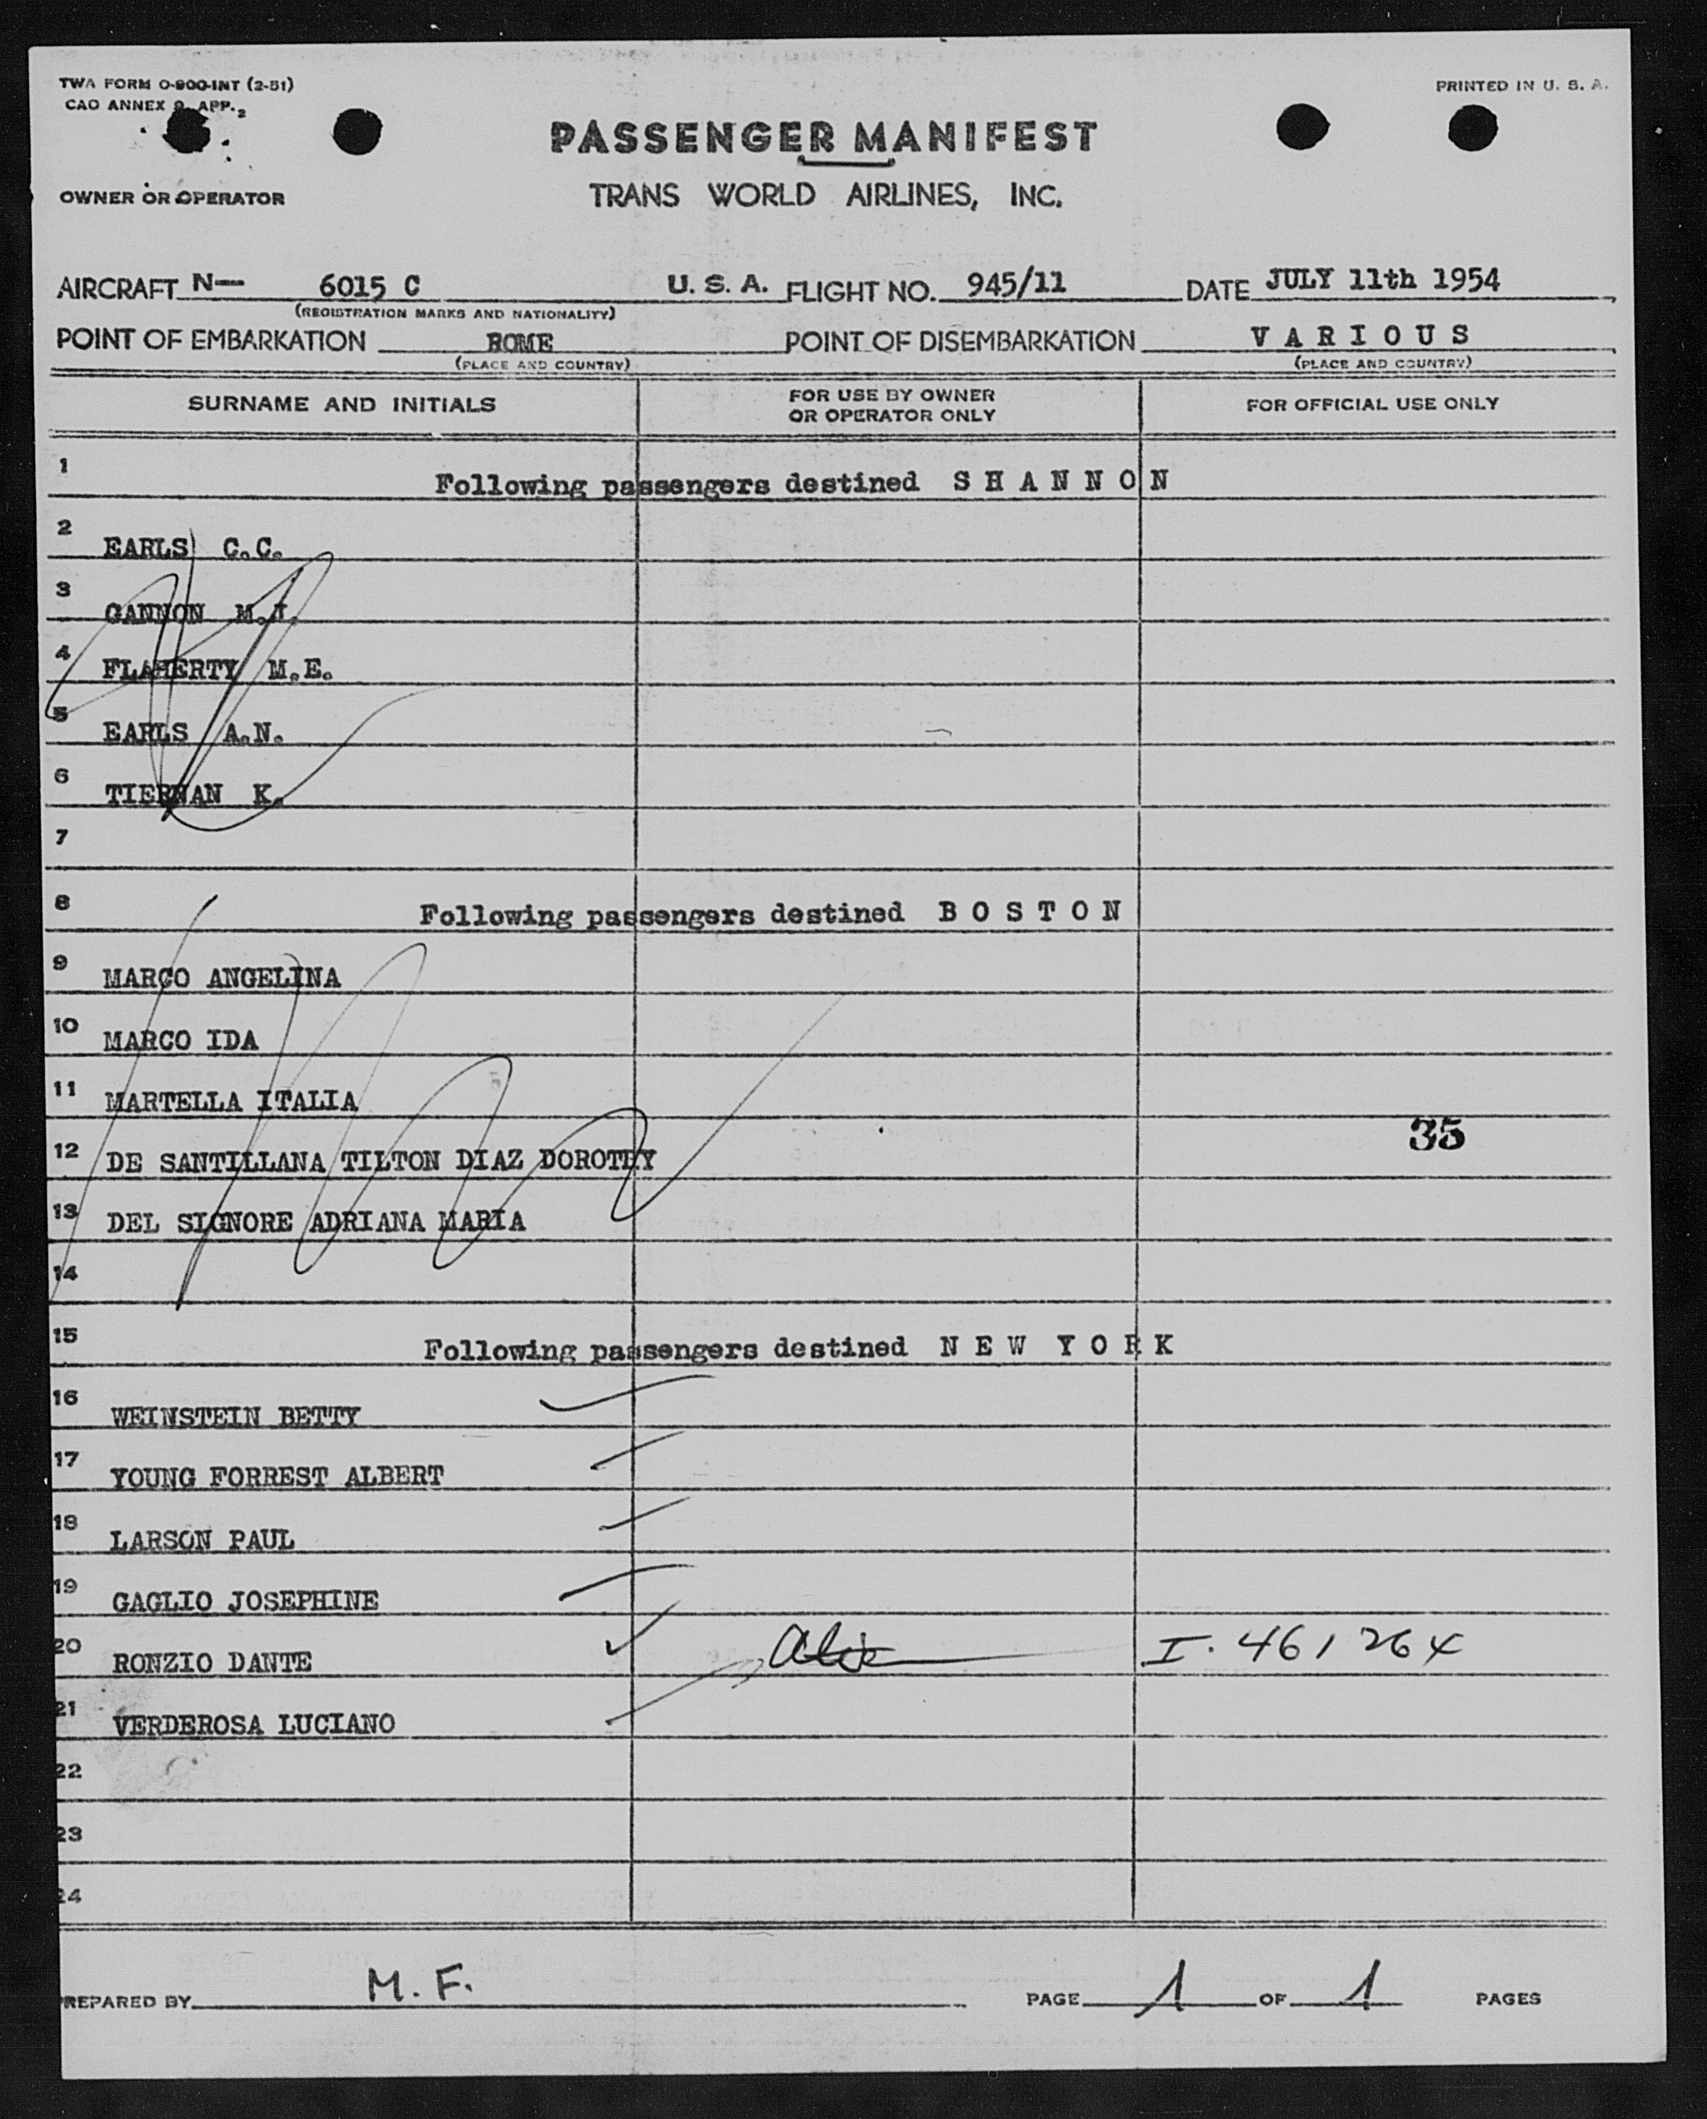 TWA FORM O-900-INT (2-51)
PRINTED IN U. S. A.
CAO ANNEX 9, APP. 2
PASSENGER MANIFEST
OWNER OR OPERATOR
TRANS WORLD AIRLINES, INC.
AIRCRAFT N— 6015 C U. S. A. FLIGHT NO. 945/11 DATE JULY 11th 1954
(REGISTRATION MARKS AND NATIONALITY)
POINT OF EMBARKATION ROME POINT OF DISEMBARKATION V A R I O U S
(PLACE AND COUNTRY) (PLACE AND COUNTRY)
SURNAME AND INITIALS
FOR USE BY OWNER
OR OPERATOR ONLY
FOR OFFICIAL USE ONLY
1 Following passengers destined S H A N N O N
2 EARLS C.C.
3 GANNON M.J.
4 FLAHERTY M.E.
5 EARLS A.N.
6 TIERNAN K.
7
8 Following passengers destined B O S T O N
9 MARCO ANGELINA
10 MARCO IDA
11 MARTELLA ITALIA
35
12 DE SANTILLANA TILTON DIAZ DOROTHY
13 DEL SIGNORE ADRIANA MARIA
14
15 Following passengers destined N E W Y O R K
16 WEINSTEIN BETTY
17 YOUNG FORREST ALBERT
18 LARSON PAUL
19 GAGLIO JOSEPHINE
20 RONZIO DANTE I. 461264
21 VERDEROSA LUCIANO
22
23
24
PREPARED BY M. F. PAGE 1 OF 1 PAGES